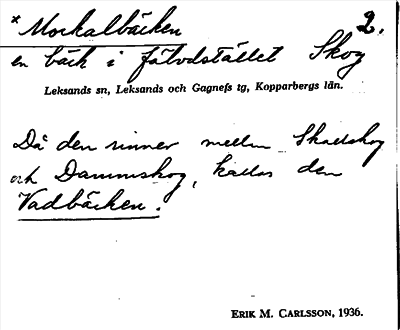 * Morkalbäcken 2.
en bäck i fäbodstället Skog
Leksands sn, Leksands och Gagnefs tg, Kopparbergs län.
Då den rinner mellan Skallskog
och Dammskog, kallas den
Vadbäcken.
ERIK M. CARLSSON, 1936.